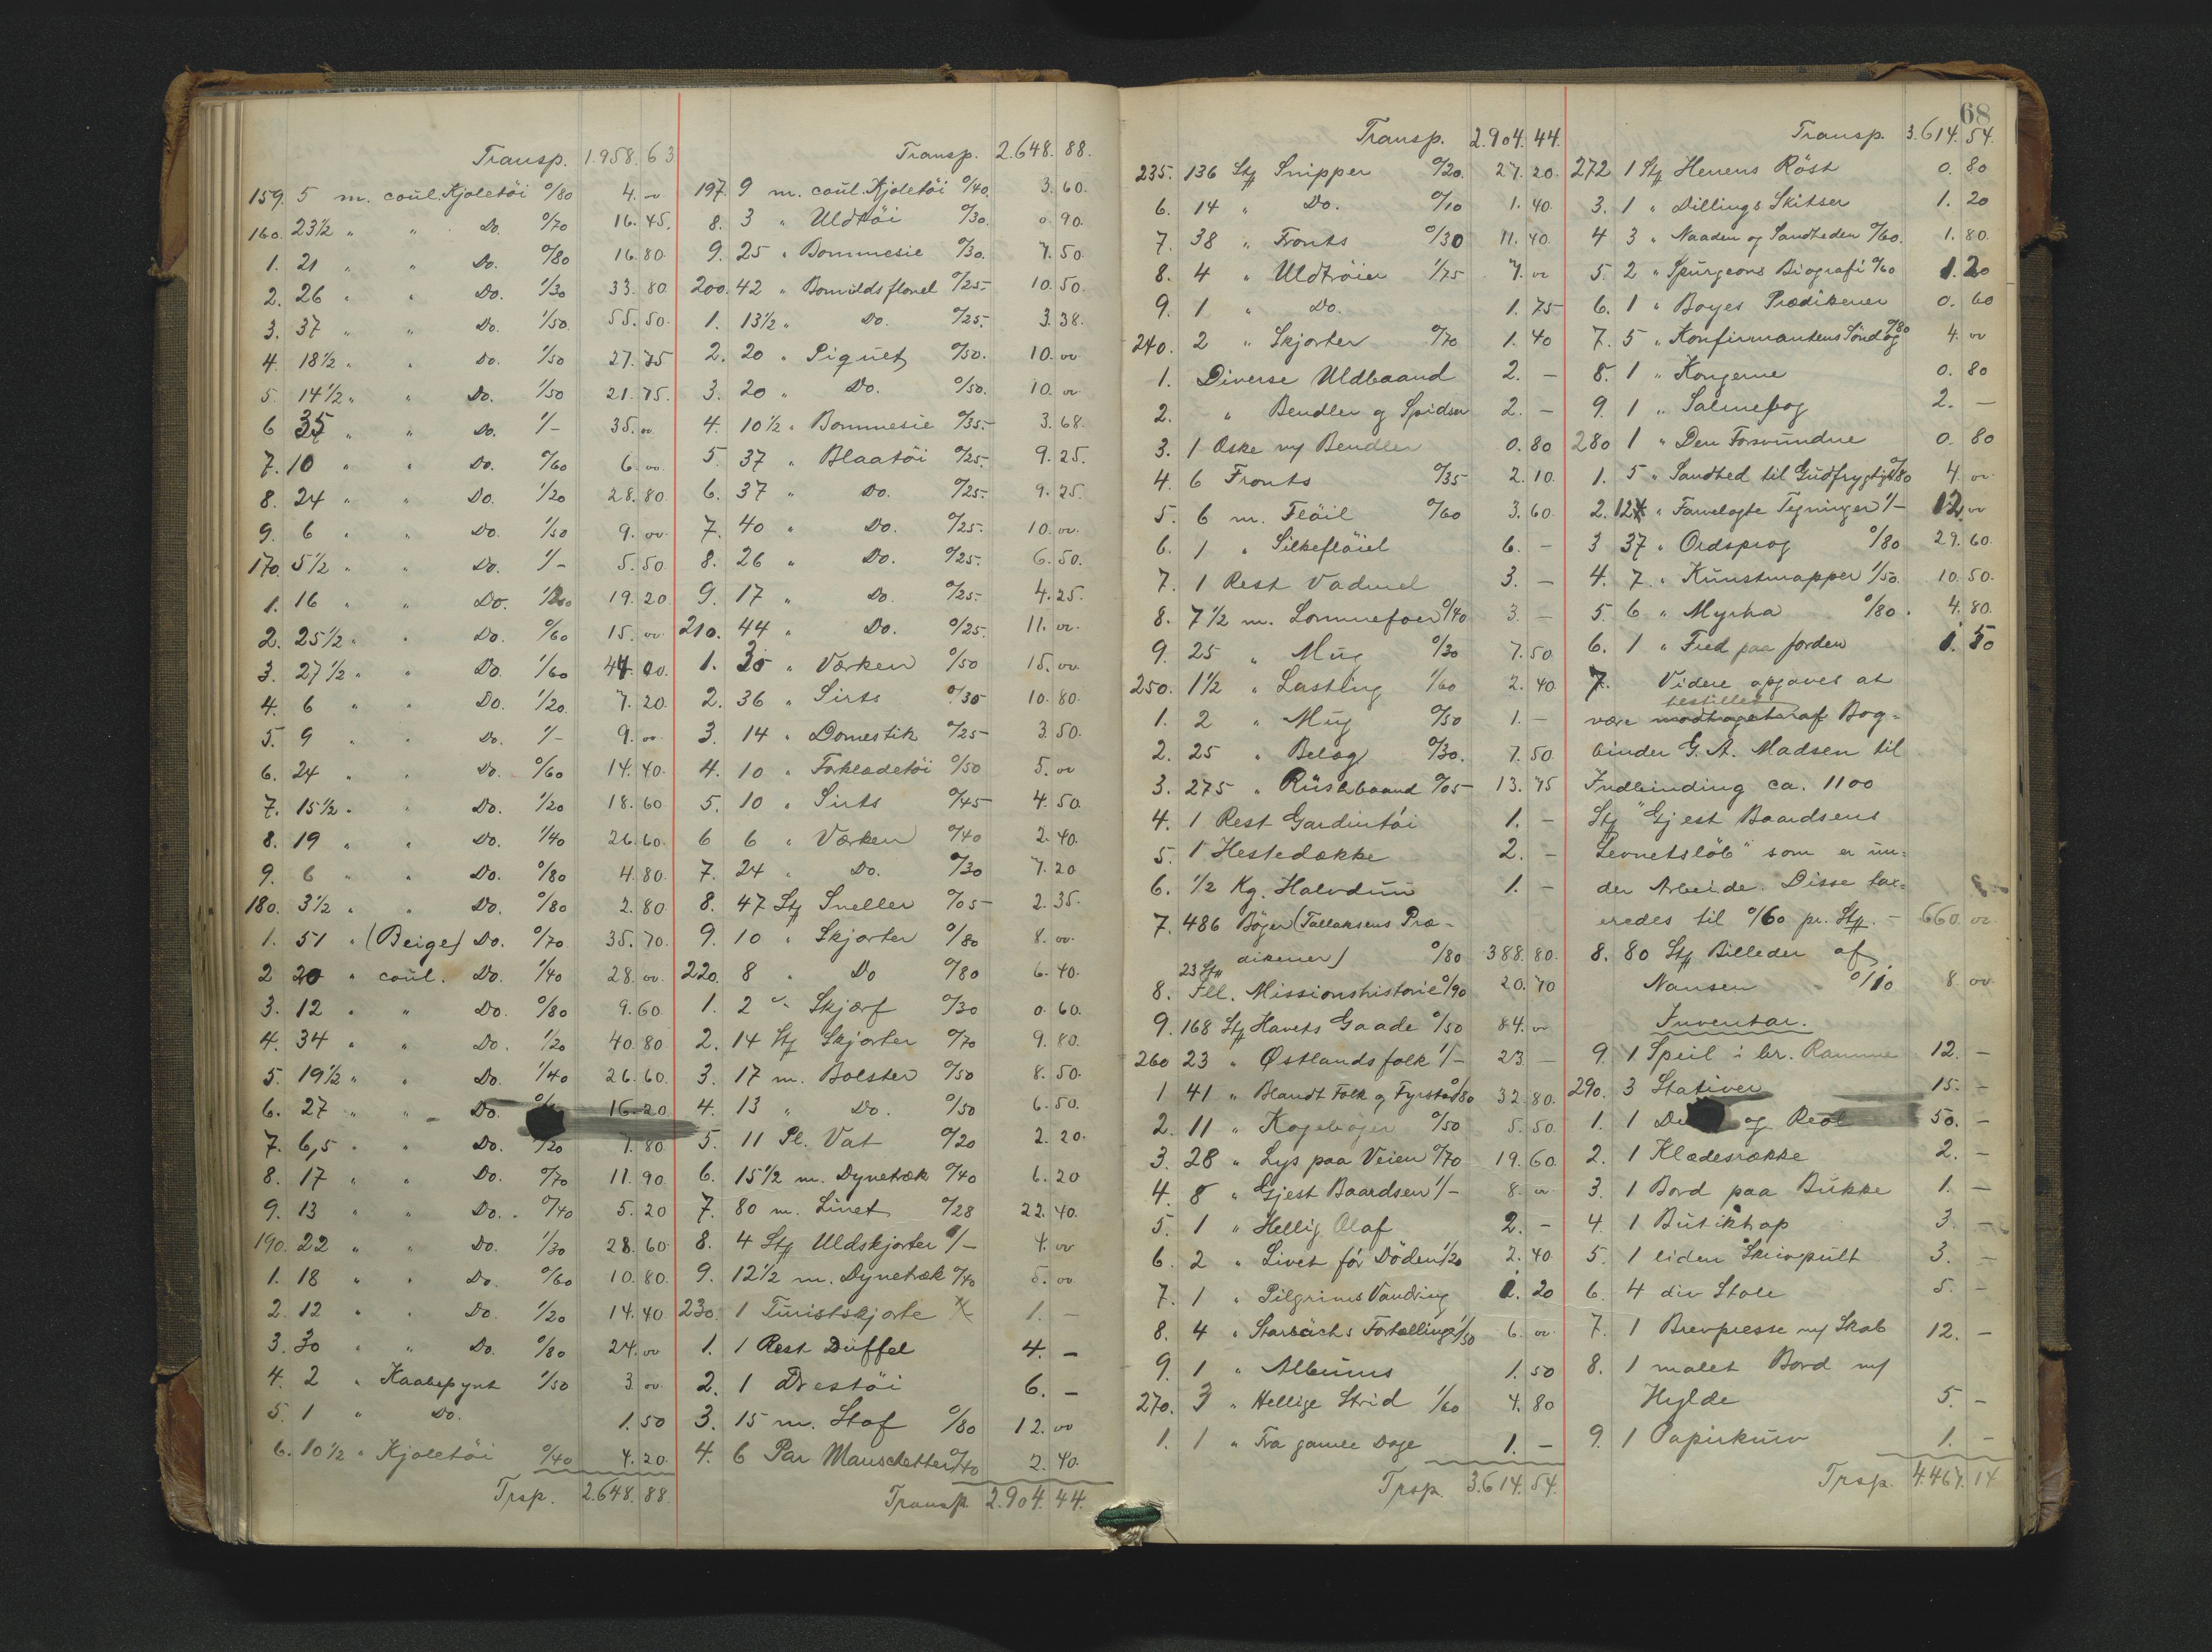 Transp. 1.958.63
159. 5 m. coul. Kjoletöi 0/80 4. 00
160. 23 1/2 " " Do. 0/70 16.45.
1. 21 " " Do. 0/80 16.80
2. 26 " " Do. 1/30 33.80
3. 37 " " Do. 1/50 55.50.
4. 18 1/2 " " Do. 1/50 27.75
5. 14 1/2 " " Do. 1/50 21.75.
6 35 " " Do. 1/- 35. 00
7. 10 " " Do. 0/60 6. 00
8. 24 " " Do. 1/20 28.80
9. 6 " " Do. 1/50 9. 00
170. 5 1/2 " " Do. 1/- 5.50
1. 16 " " Do. 1/20 19.20
2. 25 1/2 " " Do. 0/60 15. 00
3. 27 1/2 " " Do. 1/60 44.00.
4. 6 " " Do. 1/20 7.20
5. 9 " " Do. 1/- 9. 00
6. 24 " " Do. 0/60 14.40
7. 15 1/2 " " Do. 1/20 18.60
8. 19 " " Do. 1/40 26.60
9. 6 " " Do. 0/80 4.80
180. 3 1/2 " " Do. 0/80 2.80
1. 51 " (Beige) Do. 0/70 35.70.
2 20 " coul. Do. 1/40 28. 00
3. 12 " " Do. 0/80 9.60
4. 34 " " Do. 1/20 40.80
5. 19 1/2 " " Do. 1/40 26.60.
6. 27 " " Do. 16.20
7. 6,5 " " Do. 1/20 7.80
8. 17 " " Do. 0/70 11.90
9. 13 " " Do. 0/40 5.20
190. 22 " " Do. 1/30 28.60
1. 18 " " Do. 0/60 10.80.
2. 12 " " Do. 1/20 14.40
3. 30 " " Do. 0/80 24. 00
4. 2 " Kaabepynt 1/50 3. 00
5. 1 " Do. 1.50
6. 10 1/2 " Kjoletöi 0/40 4.20.
Trsp. 2.648.88.
Transp. 2.648.88.
197. 9 m. coul. Kjoletöi 0/40. 3.60.
8. 3 " Uldtöi 0/30. 0.90.
9. 25 " Bommesie 0/30. 7.50
200. 42 " Bomuldsflonel 0/25- 10.50.
1. 13 1/2 " Do. 0/25- 3.38.
2. 20 " Piquet 0/50. 10. 00
3. 20 " Do. 0/50. 10. 00
4. 10 1/2 " Bommesie 0/35- 3.68.
5. 37 " Blaatöi 0/25. 9.25.
6. 37 " Do. 0/25- 9.25.
7. 40 " Do. 0/25- 10. 00.
8. 26 " Do. 0/25- 6.50.
9. 17 " Do. 0/25- 4.25.
210. 44 " Do. 0/25. 11. 00.
1. 30 " Værken 0/50 15. 00
2. 36 " Sirts 0/30 10.80.
3. 14 " Domestik 0/25- 3.50.
4. 10 " Forklædetöi 0/50 5. 00
5. 10 " Sirts 0/45- 4.50.
6 6 " Værken 0/40 2.40.
7. 24 " Do. 0/30 7.20
8. 47 Stk Sneller 0/05- 2.35.
9. 10 " Skjorter 0/80 8. 00.
220. 8 " Do 0/80 6.40.
1. 2 " Skjærf 0/30 0.60.
2. 14 Stk Skjorter 0/70 9.80.
3. 17 m. Bolster 0/50 8.50.
4. 13 " Do. 0/50 6.50.
5. 11 Pl. Vat 0/20 2.20.
6. 15 1/2 m. Dynetræk 0/40 6.20
7. 80 m. Linet 0/28 22.40.
8. 4 Stk Uldskjorter 1/- 4. 00
9. 12 1/2 m. Dynetræk 0/40 5. 00
230. 1 Turistskjorte 1. -
1. 1 Rest Düffel 4. -
2. 1 Drestöi 6. -
3. 15 m. Stof 0/80 12. 00
4. 6 Par Manschetter 0/40 2.40.
Transp. 2.904.44.
68
Transp. 2.904.44.
235. 136 Stk Snipper 0/20. 27.20.
6. 14 " Do. 0/10 1.40.
7. 38 " Fronts 0/30 11.40.
8. 4 " Uldtröier 1/75 7. 00
9. 1 " Do. 1.75
240. 2 " Skjorter 0/70 1.40
1. Diverse Uldbaand 2. -
2. " Bendler og Spidser 2. -
3. 1 Æske m/ Bendler 0.80
4. 6 Fronts 0/35 2.10.
5. 6 m. Flöil 0/60 3.60.
6. 1 " Silkeflöiel 6. -
7. 1 Rest Vadmel 3. -
8. 7 1/2 m. Lommefoer 0/40 3. -
9. 25 " Mug 0/30 7.50
250. 1 1/2 " Lasting 1/60 2.40.
1. 2 " Mug 0/50 1. -
2. 25 " Belæg 0/30. 7.50
3. 275 " Rüshbaand 0/05- 13.75
4. 1 Rest Gardintöi 1. -
5. 1 Hestedække 2. -
6. 1/2 Kg. Halvdun 1. -
7. 486 Böger (Tallaksens Præ-
dikener) 0/80 388.80.
23 Stk
8. Ill. Missionshistorie 0/90 20.70
9. 168 Stk Havets Gaade 0/50 84. 00
260 23 " Østlandsfolk 1/- 23 -
1 41 " Blandt Folk og Fyrster 0/80 32.80.
2. 11 " Kogeböger 0/50 5.50
3. 28 " Lys paa Veien 0/70 19.60.
4. 8 " Gjest Baardsen 1/- 8. 00
5. 1 " Hellig Olaf 2. -
6. 2 " Livet för Döden 1/20 2.40
7. 1 " Pilgrims Vandring 1.20
8. 4 " Starbäcks Fortællinger 1/50 6. 00
9. 1 " Albums 1.50
270. 3 " Hellige Strid 1/60 4.80
1. 1 " Fra gamle Dage 1. -
Trsp. 3.614.54.
Transp. 3.614.54.
272 1 Stk Herrens Röst 0.80
3. 1 " Dillings Skitser 1.20
4 3 " Naaden og Sandheden 0/60. 1.80.
5. 2 " Spurgeons Biografi 0/60 1.20
6. 1 " Boyes Prædikener 0.60
7. 5 " Konfirmantens Söndag 0/80 4. 00
8. 1 " Kongerne 0.80
9. 1 " Salmebog 2. -
280 1 " Den Forsvundne 0.80
1. 5 " Sandhed til Gudfrygtighed 0/80 4. 00
2. 12 " Farvelagte Tegninger 1/- 12. 00
3 37 " Ordsprog 0/80 29.60.
4. 7 " Kunstmapper 1/50. 10.50.
5. 6 " Myrha 0/80. 4.80.
6. 1 " Fred paa Jorden 1.50
7. Videre opgaves at
bestilles
være modtaget af Bog-
binder G. A. Madsen til
Indbinding ca. 1100
Stk "Gjest Baardsens
Levnetslöb" som er un-
der Arbeide. Disse tax-
eredes til 0/60 pr. Stk. - 660. 00
8. 80 Stk Billeder af
Nansen 0/10 8 00.
Inventar.
9. 1 Speil i br. Ramme 12. -
290. 3 Stativer 15. -
1. 1 og Reol 50. -
2. 1 Klædesrække 2. -
3. 1 Bord paa Bukke 1. -
4. 1 Butiktrap 3. -
5. 1 liden Skrivepult 3. -
6. 4 div Stole 5. -
7. 1 Brevpresse m/ Skab 12. -
8. 1 malet Bord m/
Hylde 5. -
9. 1 Papirkurv 1. -
Trsp. 4.467.14